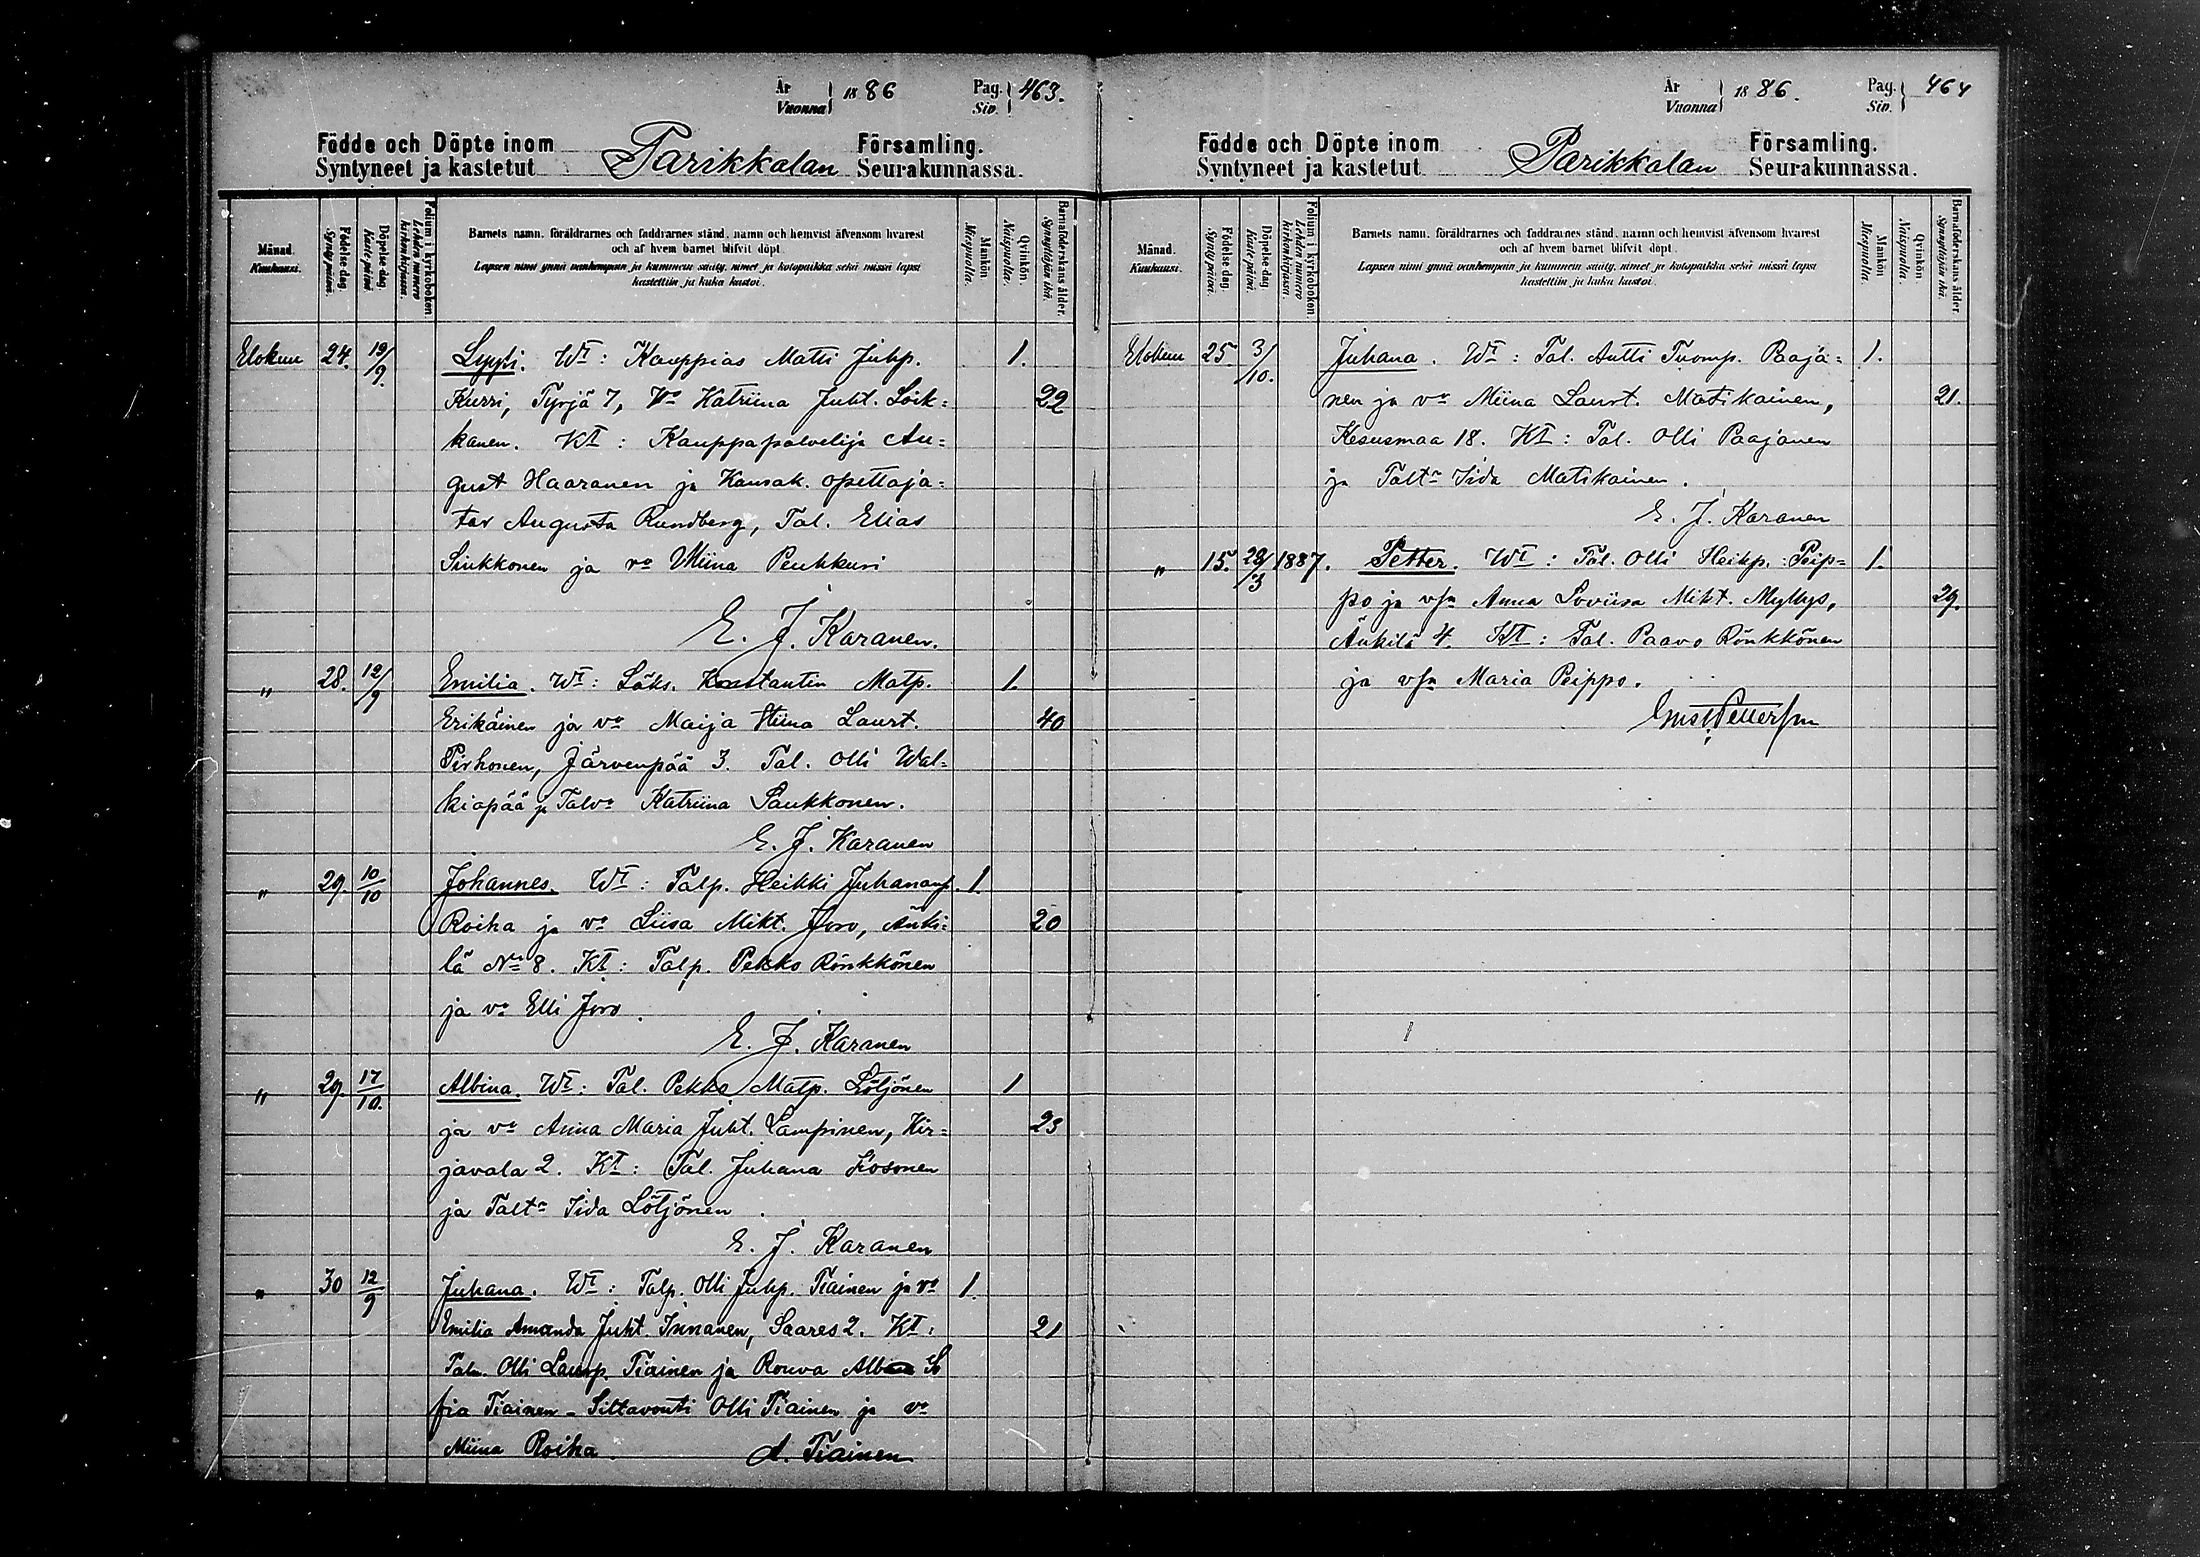 År
Vuonna } 1886
Pag.
Siv. } 463.
Födde och Döpte inom
Syntyneet ja kastetut
Parikkalan
Församling.
Seurakunnassa.
Månad.
Kuukausi.
Födelse dag.
Synty päivä.
Döpelse-dag
Kaste päivä
Folium i kyrkoboken.
Lehden numero kirkonkirjassa.
Barnets namn, föräldrarnes och faddrarnes stånd, namn och hemvist äfvensom hvarest
och af hvem barnet blifvit döpt.
Lapsen nimi ynnä vanhempain ja kummein sääty, nimet ja kotopaikka sekä missä lapsi
kastettiin ja kuka kastoi.
Mankön
Miespuolta.
Qvinkön.
Naispuolta.
Barnaföderskans ålder.
Synnyttäjän ikä.
Elokuu 24. 19/9. Lyyti. Wt: Kauppias Matti Juhp. 1.
Kurri, Tyrjä 7, Vo Katriina Juht. Loik= 22
kanen. Kt: Kauppapalvelija Au=
gust Haaranen ja Kansak. opettaja=
tar Augusta Rundberg, Tal. Elias
Sinkkonen ja vo Miina Peuhkuri
E. J. Karanen.
" 28. 12/9 Emilia. Wt: Läks. Konstantin Matp. 1.
Erikäinen ja vo Maija Stiina Laurt. 40
Pirhonen, Järvenpää 3. Tal. Olli Wal=
kiapää ja Talvo Katriina Saukkonen.
E. J. Karanen
" 29. 10/10 Johannes. Wt: Talp. Heikki Juhananp. 1.
Roiha ja vo Liisa Mikt. Joro, Änki= 20
lä No 8. Kt: Talp. Pekko Rönkkönen
ja vo Elli Joro.
E. J. Karanen
" 29. 17/10. Albina. Wt: Tal. Pekka Matp. Lötjönen 1
ja vo Anna Maria Juht. Lampinen, Kir= 23
javala 2. Kt: Tal. Juhana Kosonen
ja Taltr Iida Lötjönen.
E. J. Karanen
" 30 12/9 Juhana. Wt: Talp. Olli Juhp. Tiainen ja vo 1.
Emilia Amanda Juht. Innanen, Saares 2. Kt: 21
Olli Laurp. Tiainen ja Rouva So
fia Tiainen - Siltavouti Olli Tiainen ja vo
Miina Roiha. A. Tiainen
År
Vuonna } 1886.
Pag.
Siv. } 464
Födde och Döpte inom
Syntyneet ja kastetut
Parikkalan
Församling.
Seurakunnassa.
Månad.
Kuukausi.
Födelse dag.
Synty päivä.
Döpelse-dag
Kaste päivä
Folium i kyrkoboken.
Lehden numero kirkonkirjassa.
Barnets namn, föräldrarnes och faddrarnes stånd, namn och hemvist äfvensom hvarest
och af hvem barnet blifvit döpt.
Lapsen nimi ynnä vanhempain ja kummein sääty, nimet ja kotopaikka sekä missä lapsi
kastettiin ja kuka kastoi.
Mankön
Miespuolta.
Qvinkön.
Naispuolta.
Barnaföderskans ålder.
Synnyttäjän ikä.
Elokuu 25 3/10. Juhana. Wt: Tal. Antti Tuomp. Paaja= 1.
nen ja vo Miina Laurt. Matikainen, 21.
Kesusmaa 18. Kt: Tal. Olli Paajanen
ja Taltr Iida Matikainen.
E. J. Karanen
" 15. 28/3 1887. Petter. Wt: Tal. Olli Heikp. Peip= 1.
po ja vsa Anna Loviisa Mikt. Myllys, 29.
Änkilä 4. Kt: Tal. Paavo Rönkkönen
ja vsa Maria Peippo.
Gust. Petterson